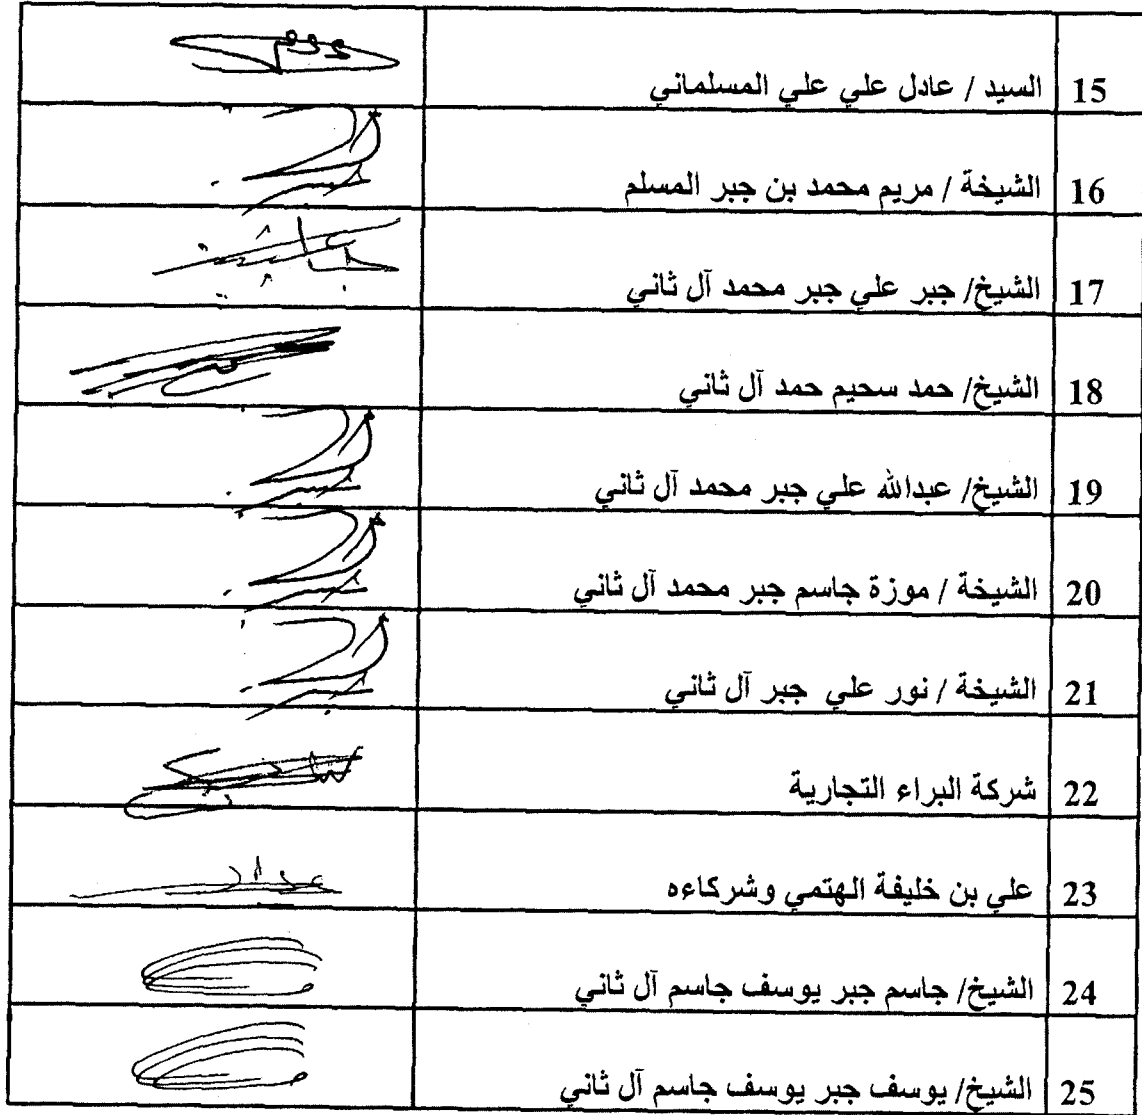 15 السيد / عادل علي علي المسلماني
16 الشيخة / مريم محمد بن جبر المسلم
17 الشيخ/ جبر علي جبر محمد آل ثاني
18 الشيخ/ حمد سحيم حمد آل ثاني
19 الشيخ/ عبدالله علي جبر محمد آل ثاني
20 الشيخة / موزة جاسم جبر محمد آل ثاني
21 الشيخة / نور علي جبر آل ثاني
22 شركة البراء التجارية
23 علي بن خليفة الهتمي وشركاءه
24 الشيخ/ جاسم جبر يوسف جاسم آل ثاني
25 الشيخ/ يوسف جبر يوسف جاسم آل ثاني